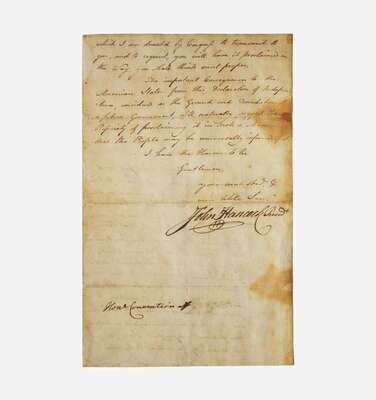 which I am directed by Congress to transmit to
you, and to request you will have it proclaimed in
the Way you shall think most proper.
The important Consequences to the
American States from this Declaration of Indepen
dence, considered as the Ground and Foundation
future Government, will naturally suggest the
Propriety of proclaiming it in such a
that the People may be universally informed
I have the Honour to be
Gentlemen
your most &
John Hancock Presidt
Honble Convention of